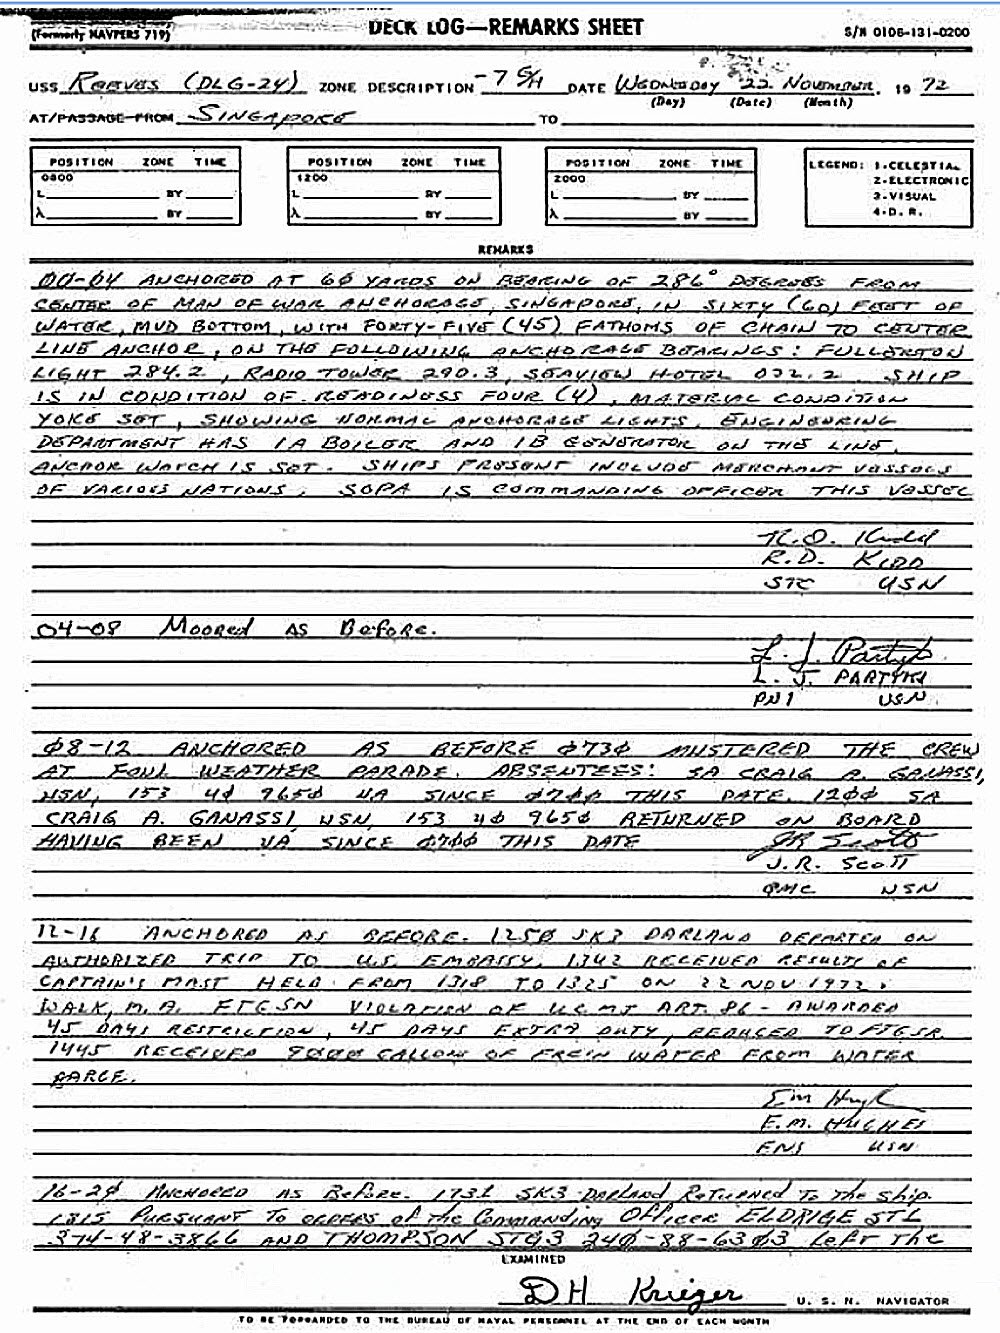 (Formerly NAVPERS 719)
DECK LOG—REMARKS SHEET
S/N 0106-131-0200
USS REEVES (DLG-24) ZONE DESCRIPTION -7 G/H DATE WEDNESDAY 22 NOVEMBER, 19 72
(Day) (Date) (Month)
AT/PASSAGE FROM SINGAPORE TO
POSITION ZONE TIME
0800
L BY
λ BY
POSITION ZONE TIME
1200
L BY
λ BY
POSITION ZONE TIME
2000
L BY
λ BY
LEGEND: 1-CELESTIAL
2-ELECTRONIC
3-VISUAL
4-D. R.
REMARKS
00-04 ANCHORED AT 60 YARDS ON BEARING OF 286° DEGREES FROM
CENTER OF MAN OF WAR ANCHORAGE, SINGAPORE, IN SIXTY (60) FEET OF
WATER, MUD BOTTOM, WITH FORTY-FIVE (45) FATHOMS OF CHAIN TO CENTER
LINE ANCHOR, ON THE FOLLOWING ANCHORAGE BEARINGS: FULLERTON
LIGHT 284.2, RADIO TOWER 290.3, SEAVIEW HOTEL 032.2. SHIP
IS IN CONDITION OF READINESS FOUR (4), MATERIAL CONDITION
YOKE SET, SHOWING NORMAL ANCHORAGE LIGHTS. ENGINEERING
DEPARTMENT HAS 1A BOILER AND 1B GENERATOR ON THE LINE.
ANCHOR WATCH IS SET. SHIPS PRESENT INCLUDE MERCHANT VESSELS
OF VARIOUS NATIONS. SOPA IS COMMANDING OFFICER THIS VESSEL
R.D. Kidd
R.D. KIDD
STC USN
04-08 Moored AS Before.
L. J. Partyka
L. J. PARTYKA
PN1 USN
08-12 ANCHORED AS BEFORE 0730 MUSTERED THE CREW
AT FOUL WEATHER PARADE. ABSENTEES: SA CRAIG A. GANASSI,
USN, 153 40 9650 UA SINCE 0700 THIS DATE. 1200 SA
CRAIG A. GANASSI, USN, 153 40 9650 RETURNED ON BOARD
HAVING BEEN UA SINCE 0700 THIS DATE
JR Scott
J.R. SCOTT
QMC USN
12-16 ANCHORED AS BEFORE. 1250 SK3 DARLAND DEPARTED ON
AUTHORIZED TRIP TO U.S. EMBASSY. 1342 RECEIVED RESULTS OF
CAPTAIN'S MAST HELD FROM 1318 TO 1325 ON 22 NOV 1972.
WALK, M. A. FTGSN VIOLATION OF UCMJ ART. 86 - AWARDED
45 DAYS RESTRICTION, 45 DAYS EXTRA DUTY, REDUCED TO FTGSR.
1445 RECEIVED 9000 GALLONS OF FRESH WATER FROM WATER
BARGE.
E.M. HUGHES
ENS USN
16-20 ANCHORED AS Before. 1731 SK3 DARLAND Returned To The Ship.
1815 PURSUANT To orders of the Commanding Officer ELDRIGE ST1
374-48-3866 AND THOMPSON STG3 240-88-6303 Left The
EXAMINED
DH Krieger U. S. N. NAVIGATOR
TO BE FORWARDED TO THE BUREAU OF NAVAL PERSONNEL AT THE END OF EACH MONTH